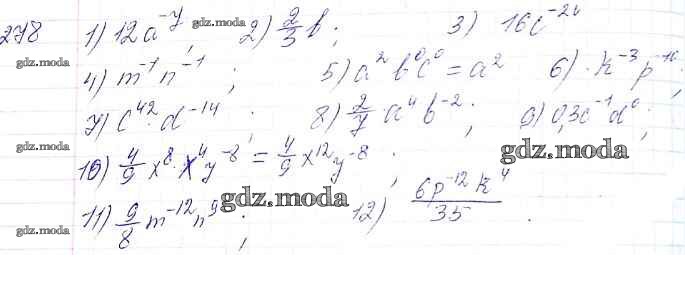 278 1) 12a⁻⁷; 2) 2/3 b; 3) 16c⁻²⁶
gdz.moda gdz.moda gdz.moda
4) m⁻¹n⁻¹; 5) a²b⁰c⁰ = a² 6) k⁻³p⁻¹⁰;
gdz.moda
7) c⁴²·d⁻¹⁴ 8) 2/7·a⁴b⁻²; 9) 0,3c⁻¹d⁰;
gdz.moda gdz.moda
10) 4/9 x⁸·x⁴y⁻⁸ = 4/9 x¹²y⁻⁸;
gdz.moda gdz.moda
11) 9/8 m⁻¹²n⁹; 12) 6p⁻¹²k⁴/35.
gdz.moda